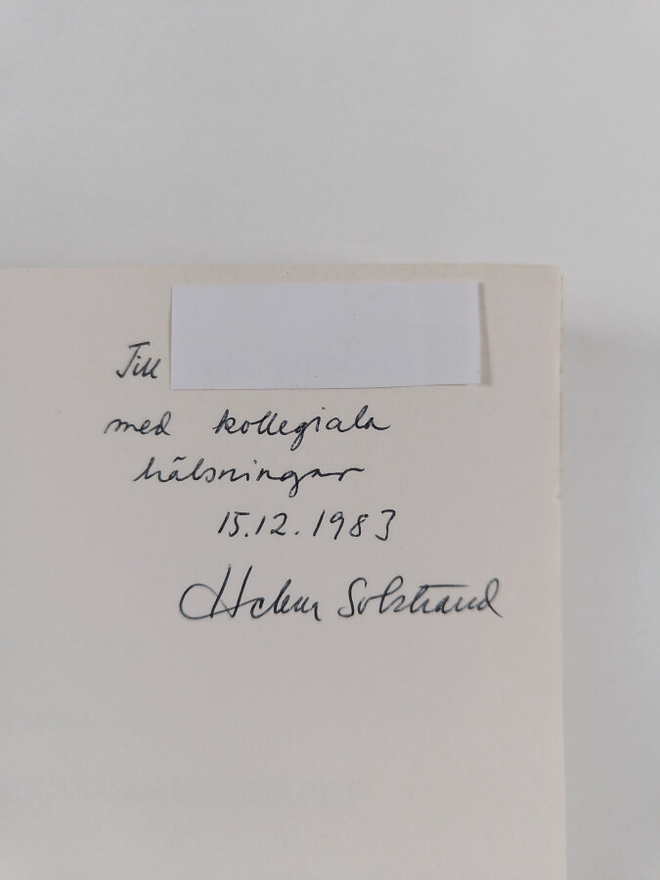 Till
med kollegiala
hälsningar
15.12.1983
Helena Solstrand